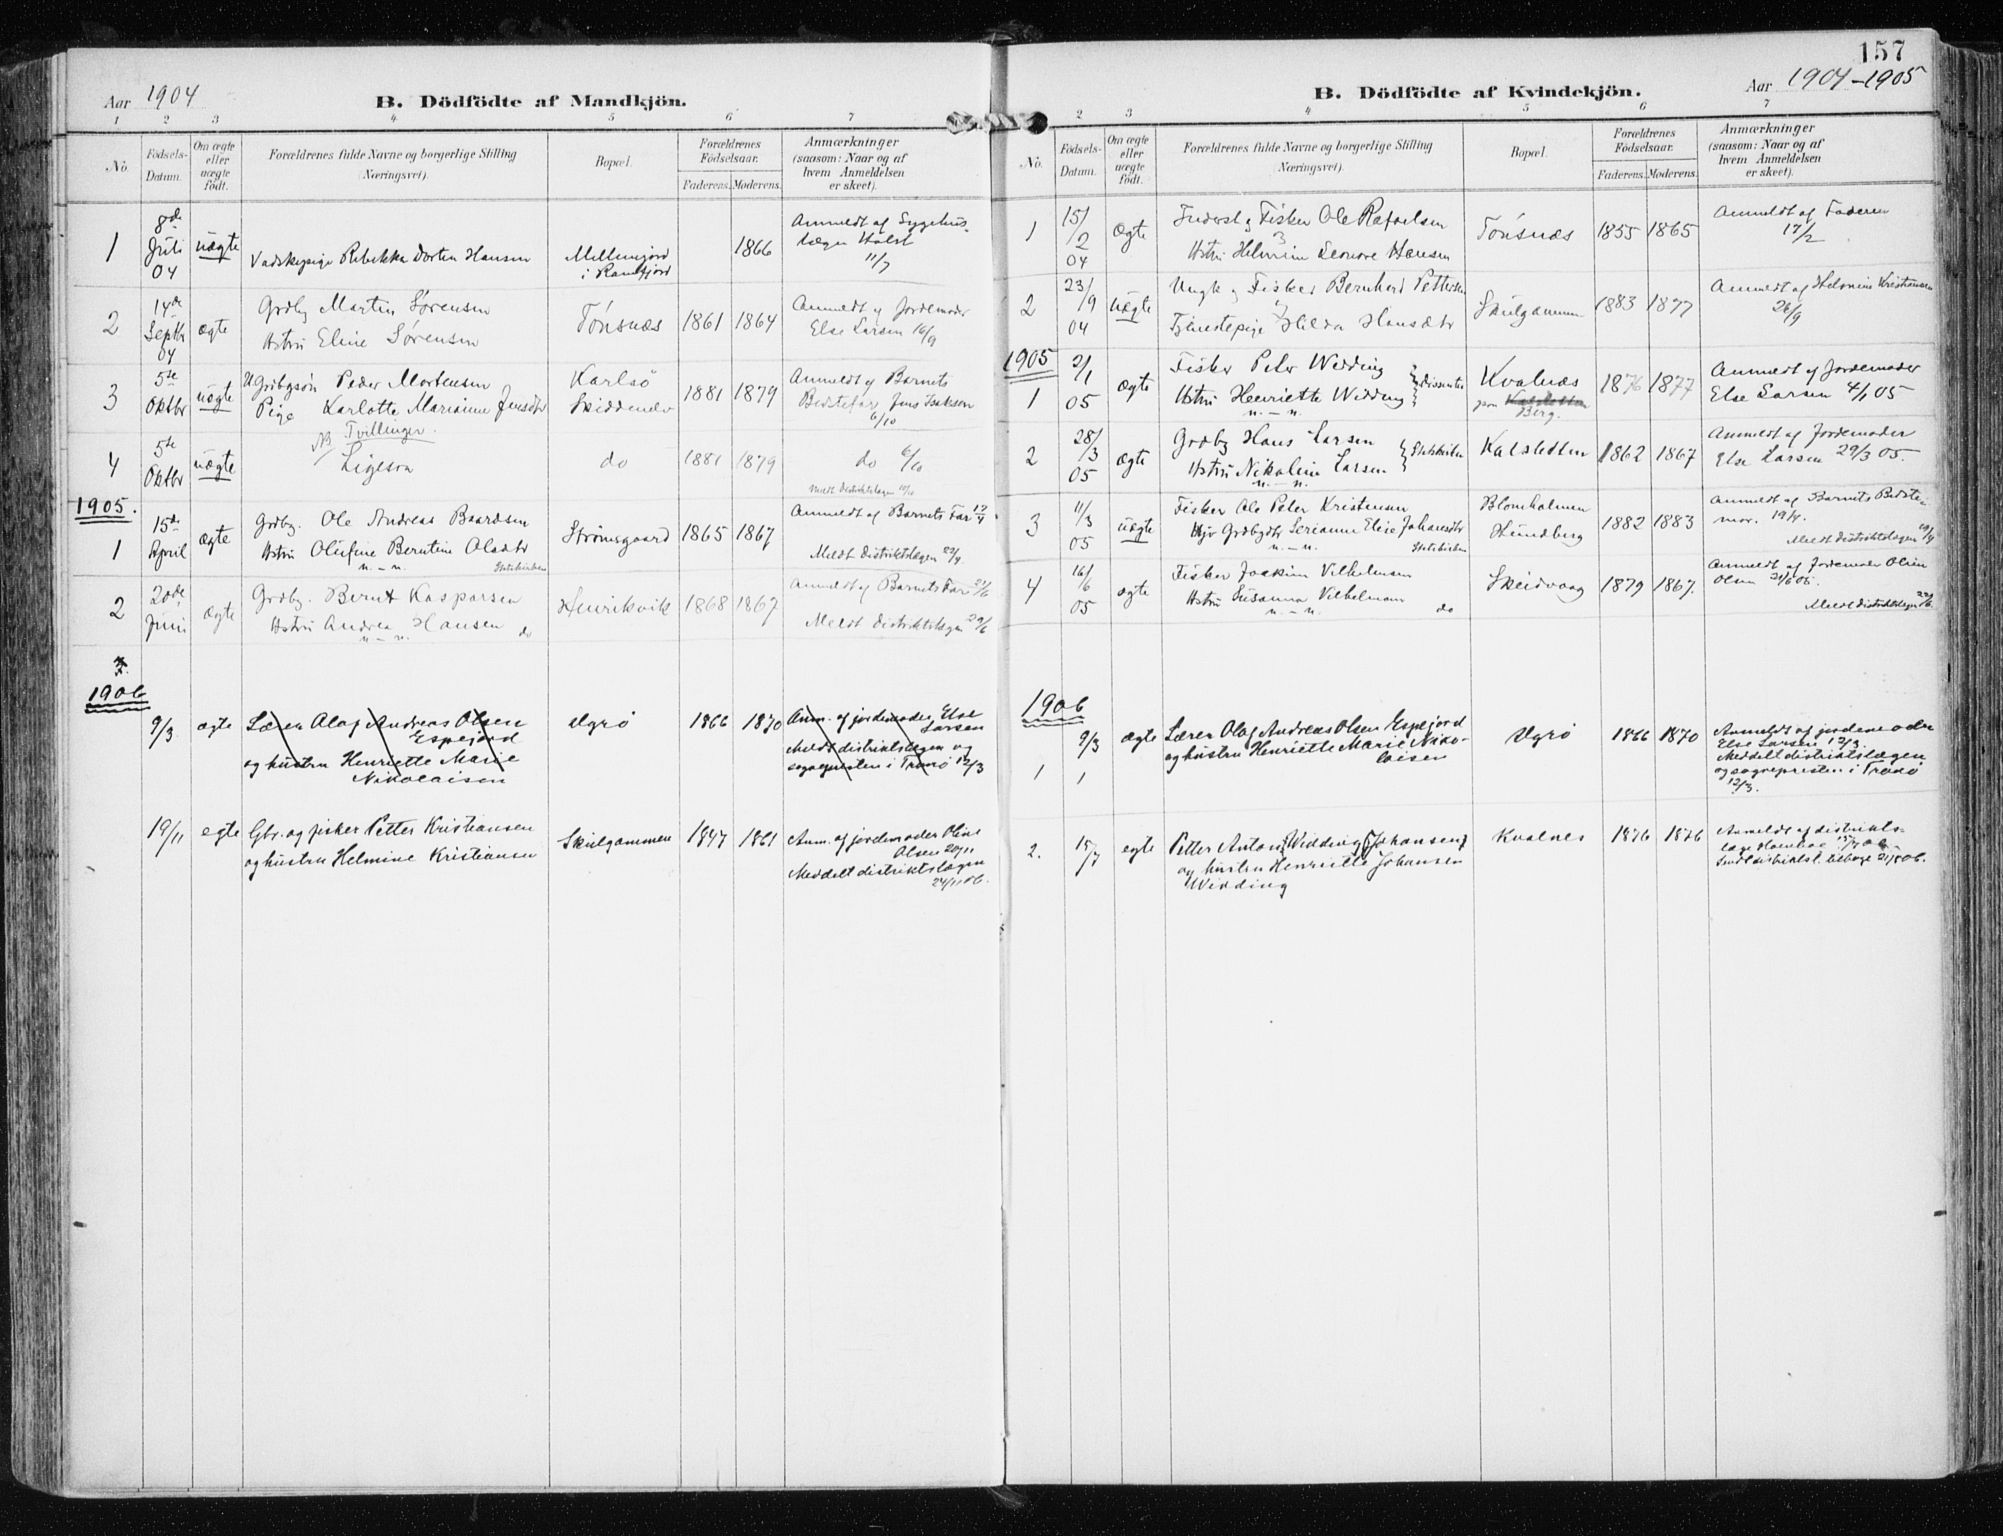 157
Aar 1904
B. Dödfödte af Mandkjön.
1 2 3 4 5 6 7
No.
Fødsels-Datum.
Om ægte eller uægte født.
Forældrenes fulde Navne og borgerlige Stilling
(Næringsvei).
Bopæl.
Forældrenes Födselsaar.
Faderens. Moderens.
Anmærkninger
(saasom: Naar og af
hvem Anmeldelsen
er skeet).
1 8de Juli 04 uægte
Vadskepige Rebekka Dortea Hansen
Mellemjord
i Ramfjord
1866
Anmeldt af Sygehus-
læge Holst
11/7
2 14de Septbr 04 ægte
Grdbg Martin Sørensen
Hstru Eline Sørensen
Tønsnæs 1861 1864
Anmeldt af Jordemoder
Else Larsen 16/9
3 5te Oktbr uægte
Grdbgsøn Peder Mortensen
Pige Karlotte Marianne Jensdtr
Karlsö
Skiddenelv
1881 1879
Anmeldt af Barnets
Bedstefar Jens Isaksen
6/10
NB Tvillinger.
4 5te Oktbr uægte
Ligesaa
do 1881 1879
do 6/10
Meldt Distriktslægen 10/10
1905.
1 15de April ægte
Grdbg. Ole Andreas Baardsen
Hstru Olufine Berntine Olsdtr
n. - n. Statskirken
Strömsgaard 1865 1867
Anmeldt af Barnets Far 17/4
Meldt Distriktslægen 22/4
2 20de Juni ægte
Grdbg. Bernt Kasparsen
Hstru Andrea Hansen do
n. - n.
Henrikvik 1868 1867
Anmeldt af Barnets Far 21/6
Meldt Distriktslægen 29/6
1906
9/3 ægte Lærer Olaf Andreas Olsen
Espejord
og hustru Henriette Marie
Nikolaisen
1866 1870
Anm. af jordemoder Else
Larsen
Meldt distriktslægen og
sognepresten i Tranö 12/3
19/11 egte Gbr. og fisker Petter Kristiansen
og hustru Helmine Kristiansen
Skulgammen 1847 1861
Anm. af jordemoder Oline
Olsen 20/11
Meddelt distriktslægen
24/11 06.
Aar 1904-1905
B. Dödfödte af Kvindekjön.
2 3 4 5 6 7
No.
Födsels-Datum.
Om ægte eller uægte född.
Forældrenes fulde Navne og borgerlige Stilling
Næringsvei).
Bopæl.
Forældrenes Födselsaar.
Faderens. Moderens.
Anmærkninger
(saasom: Naar og af
hvem Anmeldelsen
er skeet).
1 15/2 04 ægte
Inderst og Fisker Ole Rafaelsen
Hstru Helmine Leonore Hansen
Tönsnæs 1855 1865
Anmeldt af Faderen
17/2
2 23/9 04 uægte
Ungk og Fisker Bernhard Pettersen
Tjenestepige Hilda Hansdtr
Skulgammen 1883 1877
Anmeldt af Helmine Kristiansen
26/9
1905
1 2/1 05 ægte
Fisker Peter Wedding
Hstru Henriette Widding
n. - n. dissenter
Kvalnæs
Berg.
1876 1877
Anmeldt af Jordemoder
Else Larsen 4/1 05
2 28/3 05 ægte
Grdbg Hans Larsen
Hstru Nikoline Larsen
n. - n. Statskirken
Kalsletten 1862 1867
Anmeldt af Jordemoder
Else Larsen 29/3 05.
3 11/3 05 uægte
Fisker Ole Peter Kristensen
Grdbgdtr Serianne Elise Johansdtr
n. - n. Statskirken
Blomholmen
Hundberg
1882 1883
Anmeldt af Barnets Bedste-
mor. 19/4.
Meldt Distriktslægen 19/4
4 16/6 05 ægte
Fisker Joakim Vilhelmsen
Hstru Susanna Vilhelmsen
n. - n. do
Skeidvaag 1879 1867.
Anmeldt af Jordemoder Oline
Olsen 21/6 05.
Meldt Distriktslægen 22/6.
1906
1 9/3 ægte Lærer Olaf Andreas Olsen Espejord
og hustru Henriette Marie Niko-
laisen
1866 1870
Anmeldt af jordemoder
Else Larsen 12/3.
Meddelt distriktslægen
og sognepresten i Tranö
12/3.
2. 15/7 egte Petter Anton Widding (Johansen)
og hustru Henriette Johansen
Widding
Kvalnes 1876 1876
Anmeldt af distrikts-